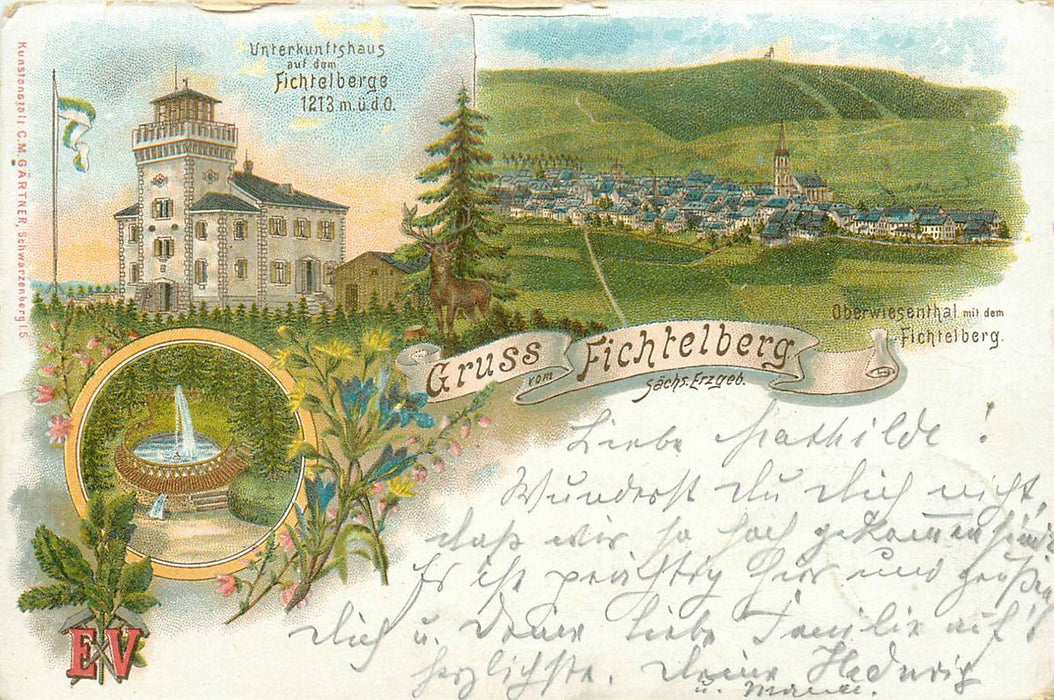 Unterkunftshaus
auf dem
Fichtelberge
1213 m.ü.d.O.
Kunstanstalt C.M. GÄRTNER, Schwarzenberg i.S.
Oberwiesenthal mit dem
Fichtelberg.
Gruss vom Fichtelberg
Sächs. Erzgeb.
EV
Liebe Mathilde!
Wunderst du dich nicht,
daß wir so hoch gekommen sind.
Es ist prächtig hier und grüßen
dich u. Deine liebe Familie auf's
herzlichste. Deine Hedwig
u.